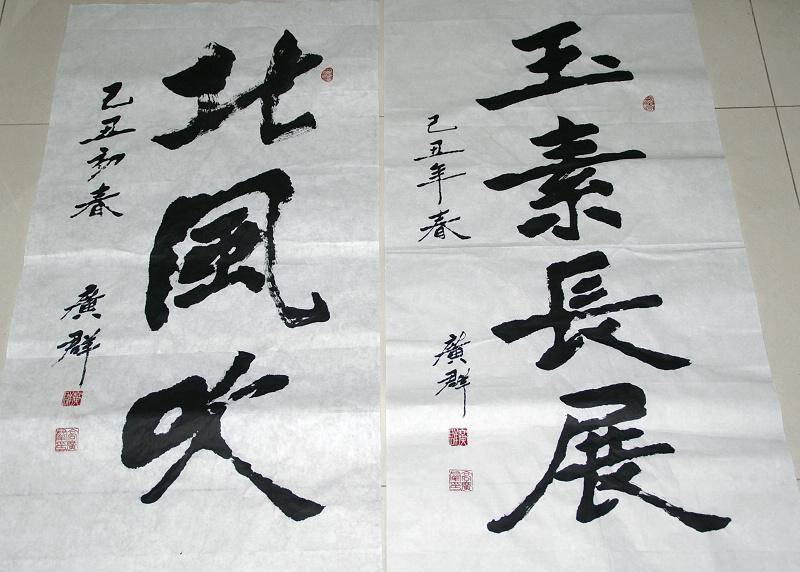 玉素長展
己丑年春
廣群
北風吹
己丑初春
廣群